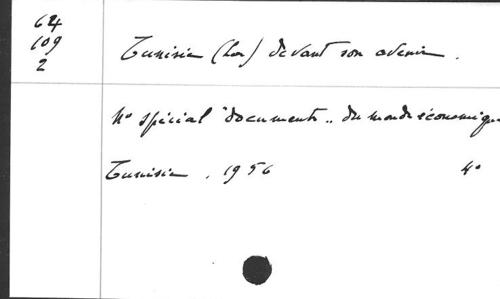 64
109
2
Tunisie (La) devant son avenir.
N° spécial "documents" du monde économique
Tunisie, 1956 4°